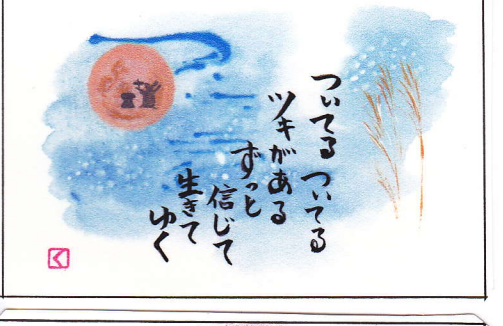 ついてる ついてる
ツキがある
ずっと
信じて
生きて
ゆく
く